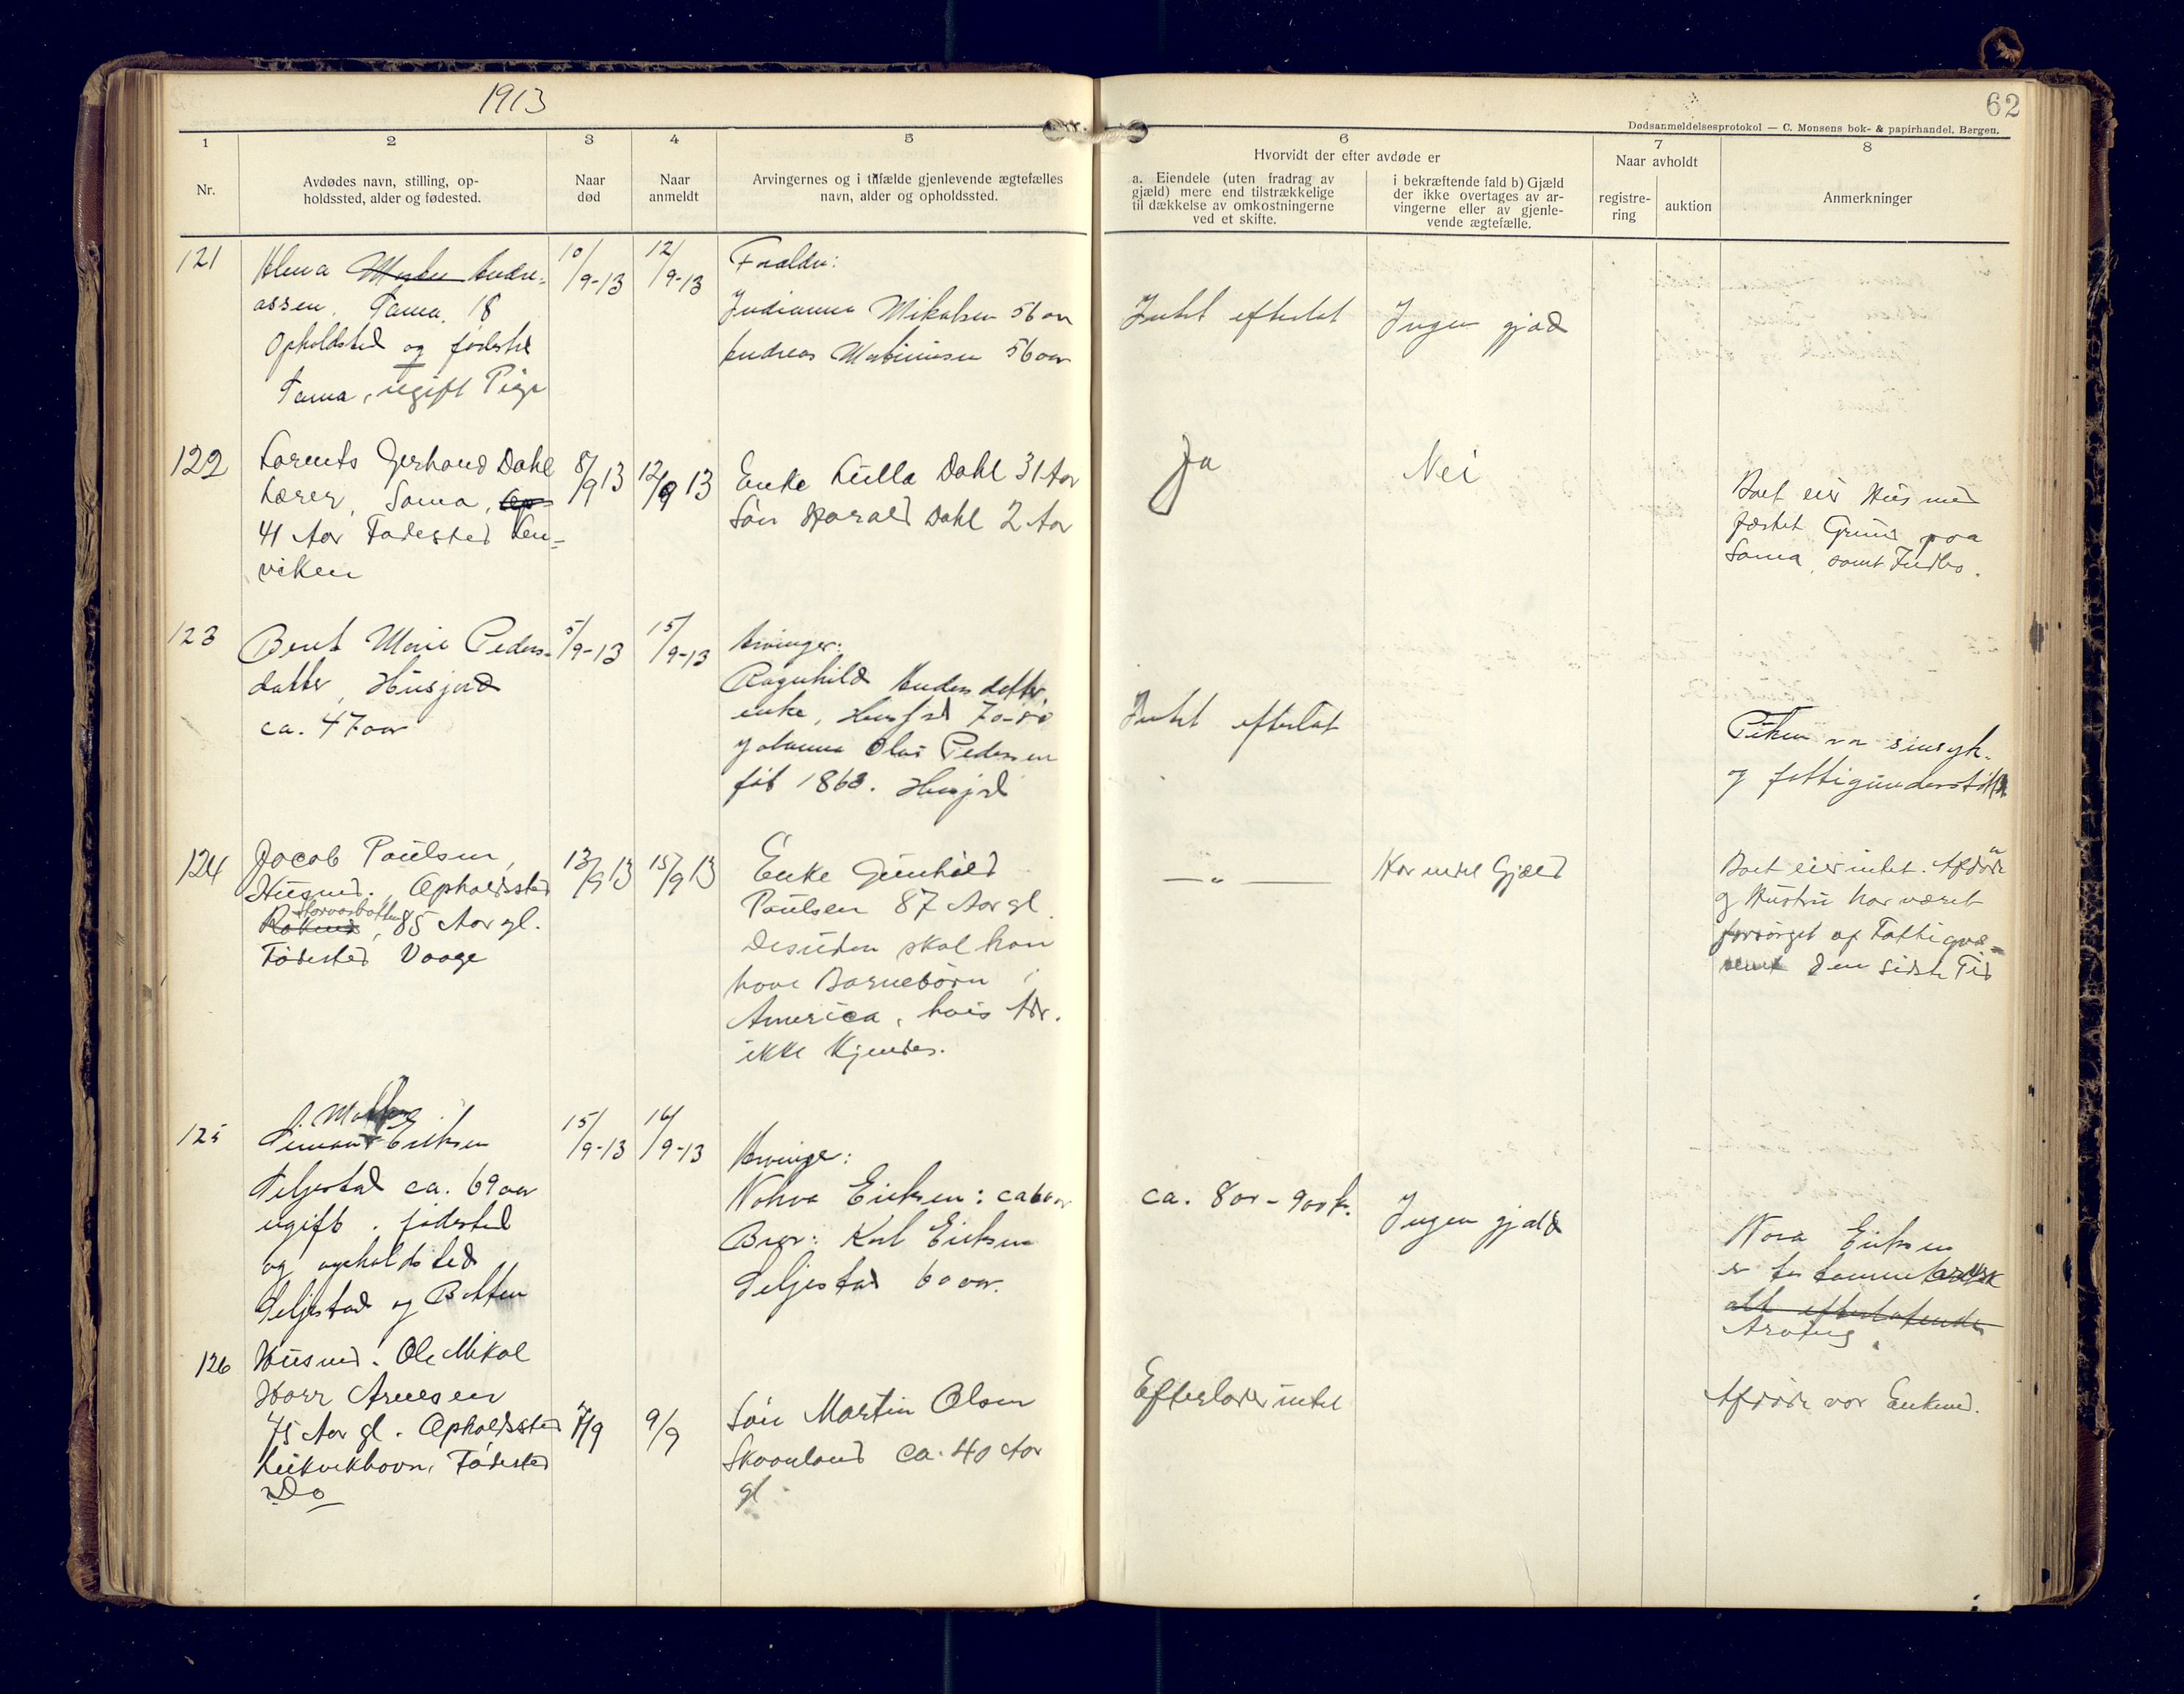 1913
62
Dødsanmeldelsesprotokol — C. Monsens bok- & papirhandel, Bergen.
1
2
3
4
5
6
7
8
Nr.
Avdødes navn, stilling, op-
holdssted, alder og fødested.
Naar
død
Naar
anmeldt
Arvingernes og i tilfælde gjenlevende ægtefælles
navn, alder og opholdssted.
Hvorvidt der efter avdøde er
a. Eiendele (uten fradrag av
gjæld) mere end tilstrækkelige
til dækkelse av omkostningerne
ved et skifte.
i bekræftende fald b) Gjæld
der ikke overtages av ar-
vingerne eller av gjenle-
vende ægtefælle.
Naar avholdt
registre-
ring
auktion
Anmerkninger
121
Andre-
assen, 18
Opholdsted og fødested
ugift Pige
10/9-13
12/9-13
Forældre:
Mikalsen 56 aar
Andreas 56 aar
Intet efterlat
Ingen gjæld
122
Lorents Gerhard Dahl
Lærer, Sama,
41 Aar Fødested Len-
viken
8/9 13
12/9 13
Enke Lulla Dahl 31 Aar
Søn Harald Dahl 2 Aar
Ja
Nei
Boet eier Hus med
fæstet Grund paa
Sama, samt Indbo.
123
Berit Marie Peders-
datter, Husjord
ca. 47 aar
5/9-13
15/9-13
Arvinger:
Ragnhild Andersdatter,
enke, Husjord 70-80
Johanna Olai Pedersen
født 1863. Husjord
Intet efterlat
Piken var sinsyk
og fattigunderstøttet
124
Jacob Paulsen,
Husmd. Opholdssted
Storvasbotten
85 Aar gl.
Fødested Vaage
13/9 13
15/9 13
Enke Gunhild
Paulsen 87 Aar gl.
Desuden skal han
have Barnebørn i
America, hvis Adr.
ikke kjendes.
— „ —
Har intet Gjæld
Boet eier intet. Afdøde
og Hustru har været
forsørget af Fattigvæ-
senet den sidste Tid
125
Eriksen
Seljestad ca. 69 aar
ugift. fødested
og opholdsted
Seljestad og Botten
15/9-13
16/9-13
Arvinge:
Eriksen: ca 60 aar
Bror: Karl Eriksen
Seljestad 60 aar.
ca. 800-900 kr.
Ingen gjæld
Nora Eriksen
er
alt efterlatende
126
Husmd. Ole Mikal
Arnesen
75 Aar gl. Opholdssted
Fødested
Do
7/9
9/9
Søn Martin Olsen
Skaanland ca. 40 Aar
gl
Efterlader intet
Afdøde var Enkemd.